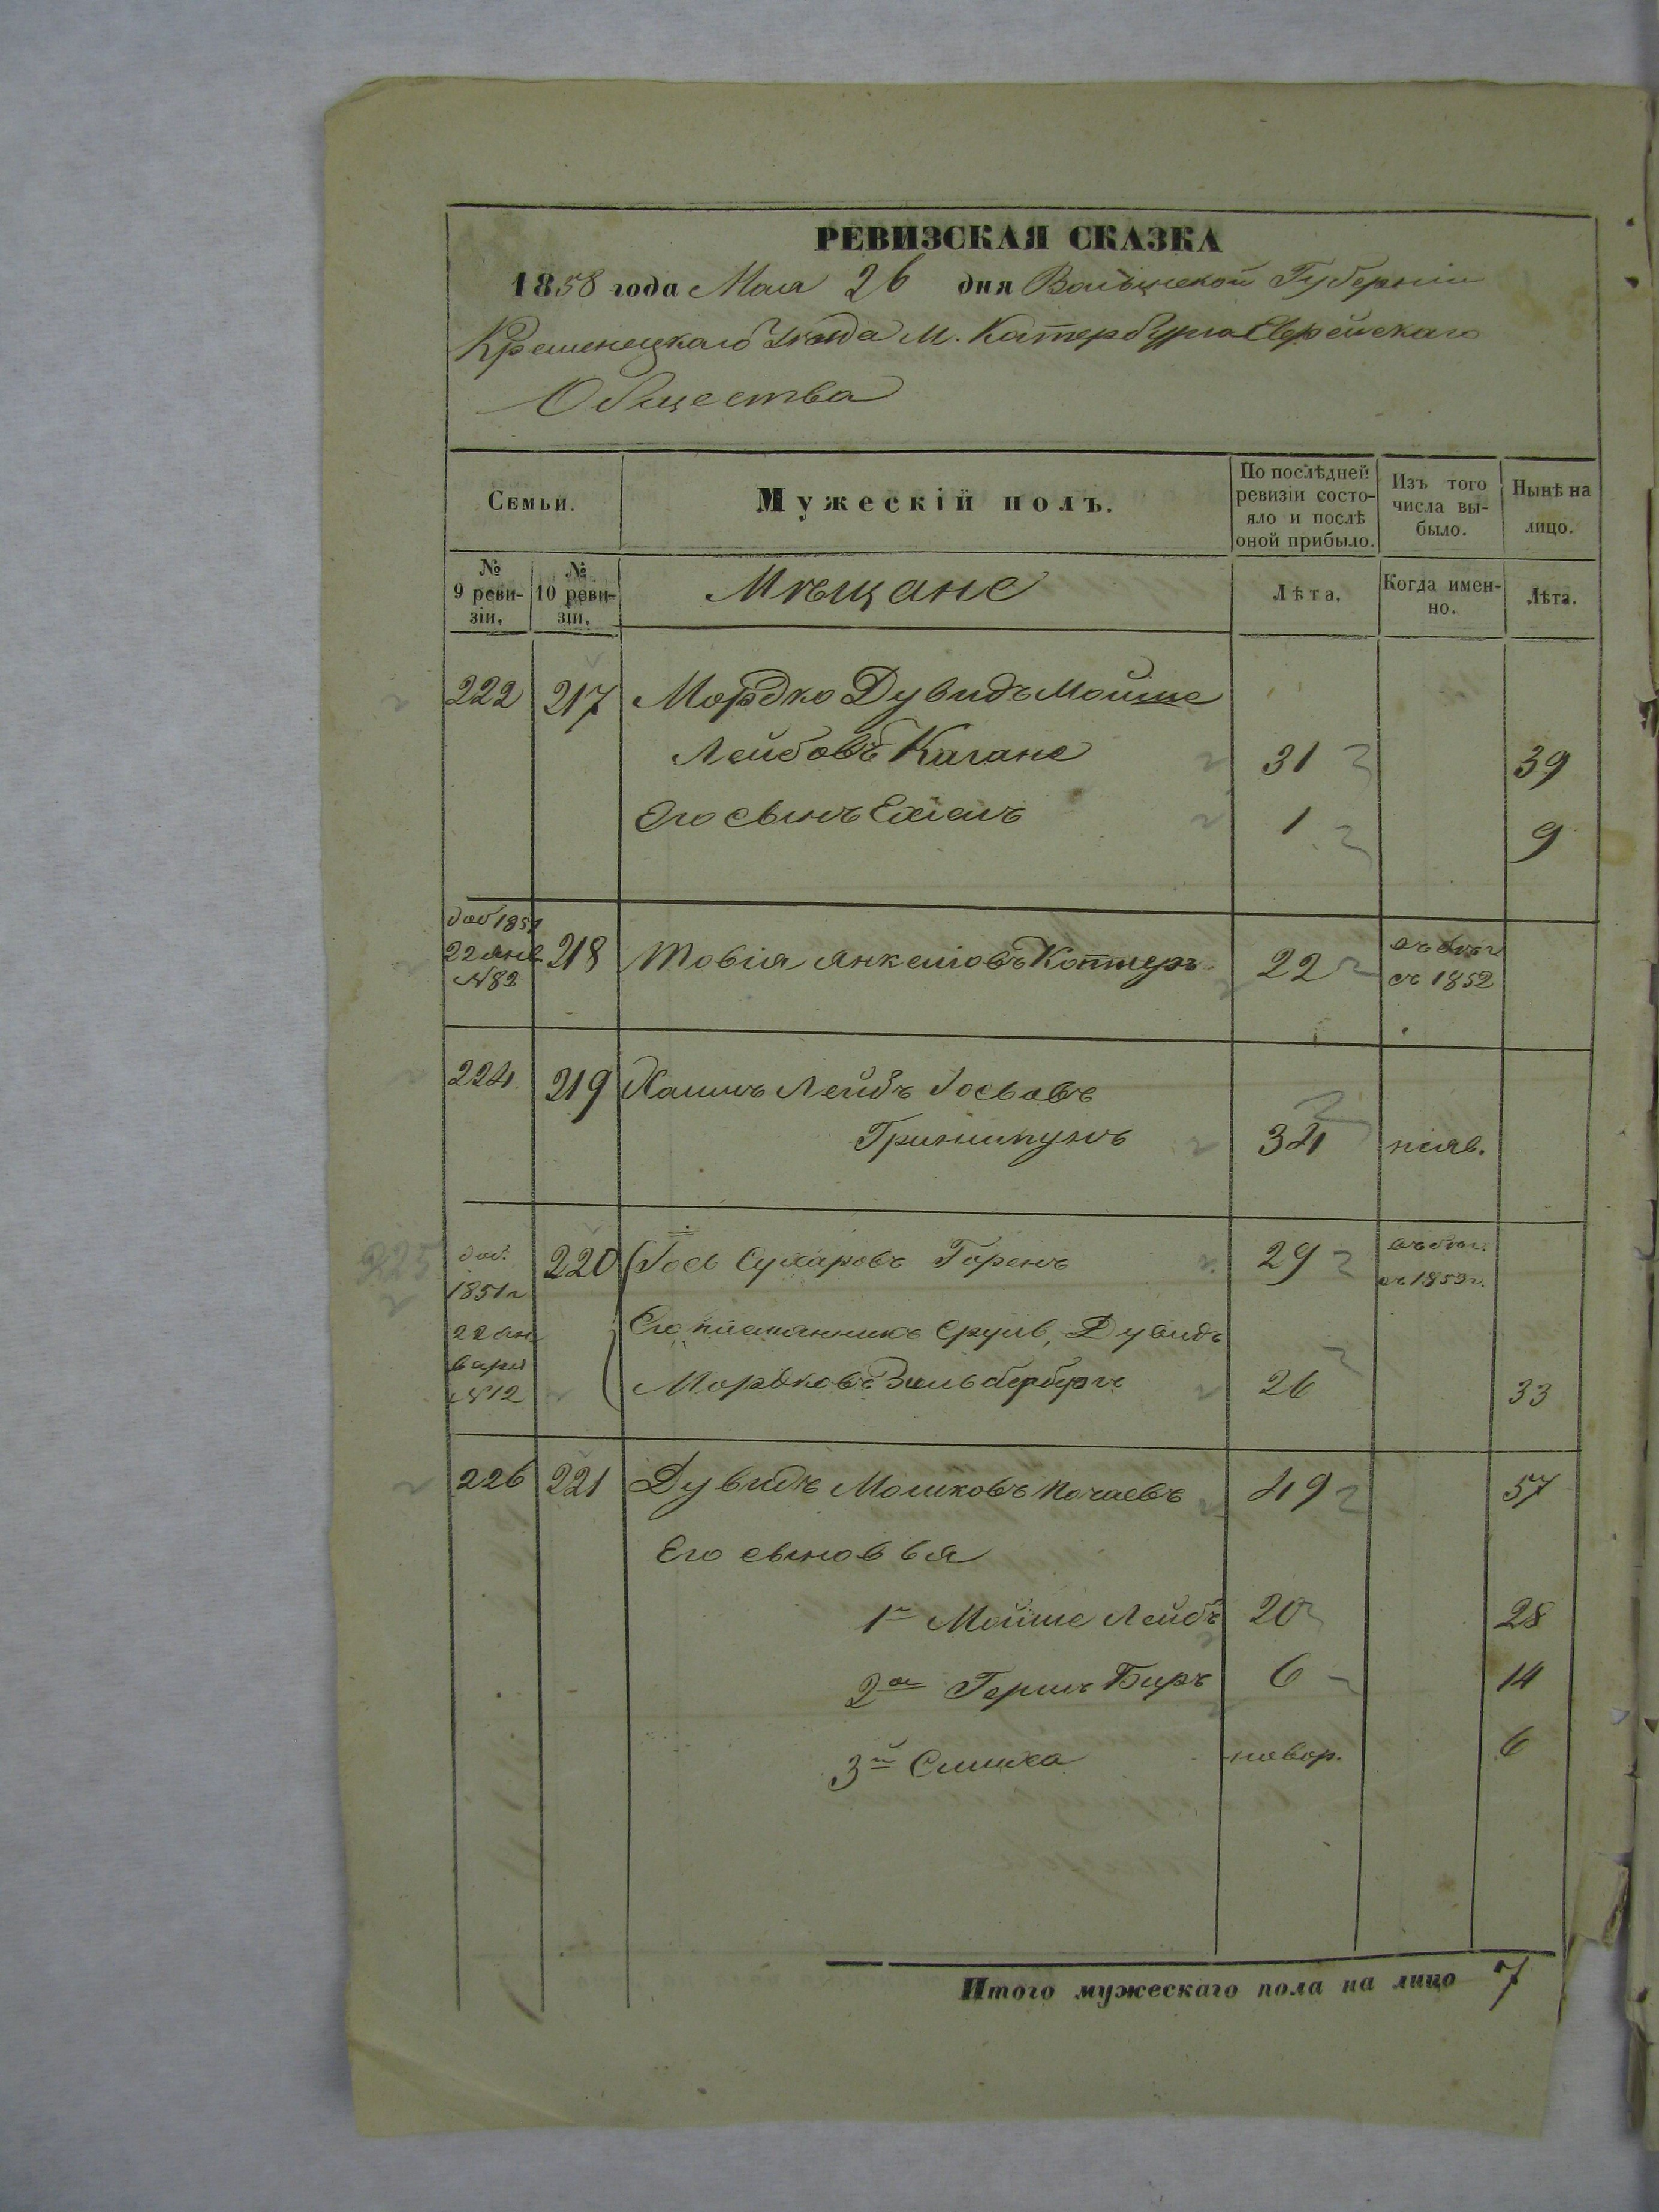 РЕВИЗСКАЯ СКАЗКА
1858 года Мая 26 дня Волынской Губерніи
Кременецкаго Уѣзда М. Катербурга Еврейскаго
Общества
Семьи. Мужескій полъ. По послѣдней ревизіи состояло и послѣ оной прибыло. Изъ того числа выбыло. Нынѣ на лицо.
№ 9 ревизіи, № 10 ревизіи, Мѣщане Лѣта, Когда именно. Лѣта.
222 217 Мордко Дувидъ Мойше
Лейбовъ Кагане 31 39
Его сынъ Ехіель 1 9
доб 1851
22 янв. 218 Товія Янкелiовъ 22 въ бѣг
№82 съ 1852
224 219 Хаимъ Лейбъ Іосьовъ
34 неяв.
225 доб. 220 Іось Сухаровъ Горенъ 29 въ бѣг.
1851 г съ 1853 г.
22 ян Его племянникъ Сруль Дувидъ
варя Мордковъ Зильбербергъ 26 33
№12
226 221 Дувидъ Мошковъ Почаевъ 49 57
Его сыновья
1й Мойше Лейбъ 20 28
2ой Гершъ Беръ 6 14
3й Симха новор. 6
Итого мужескаго пола на лицо 7